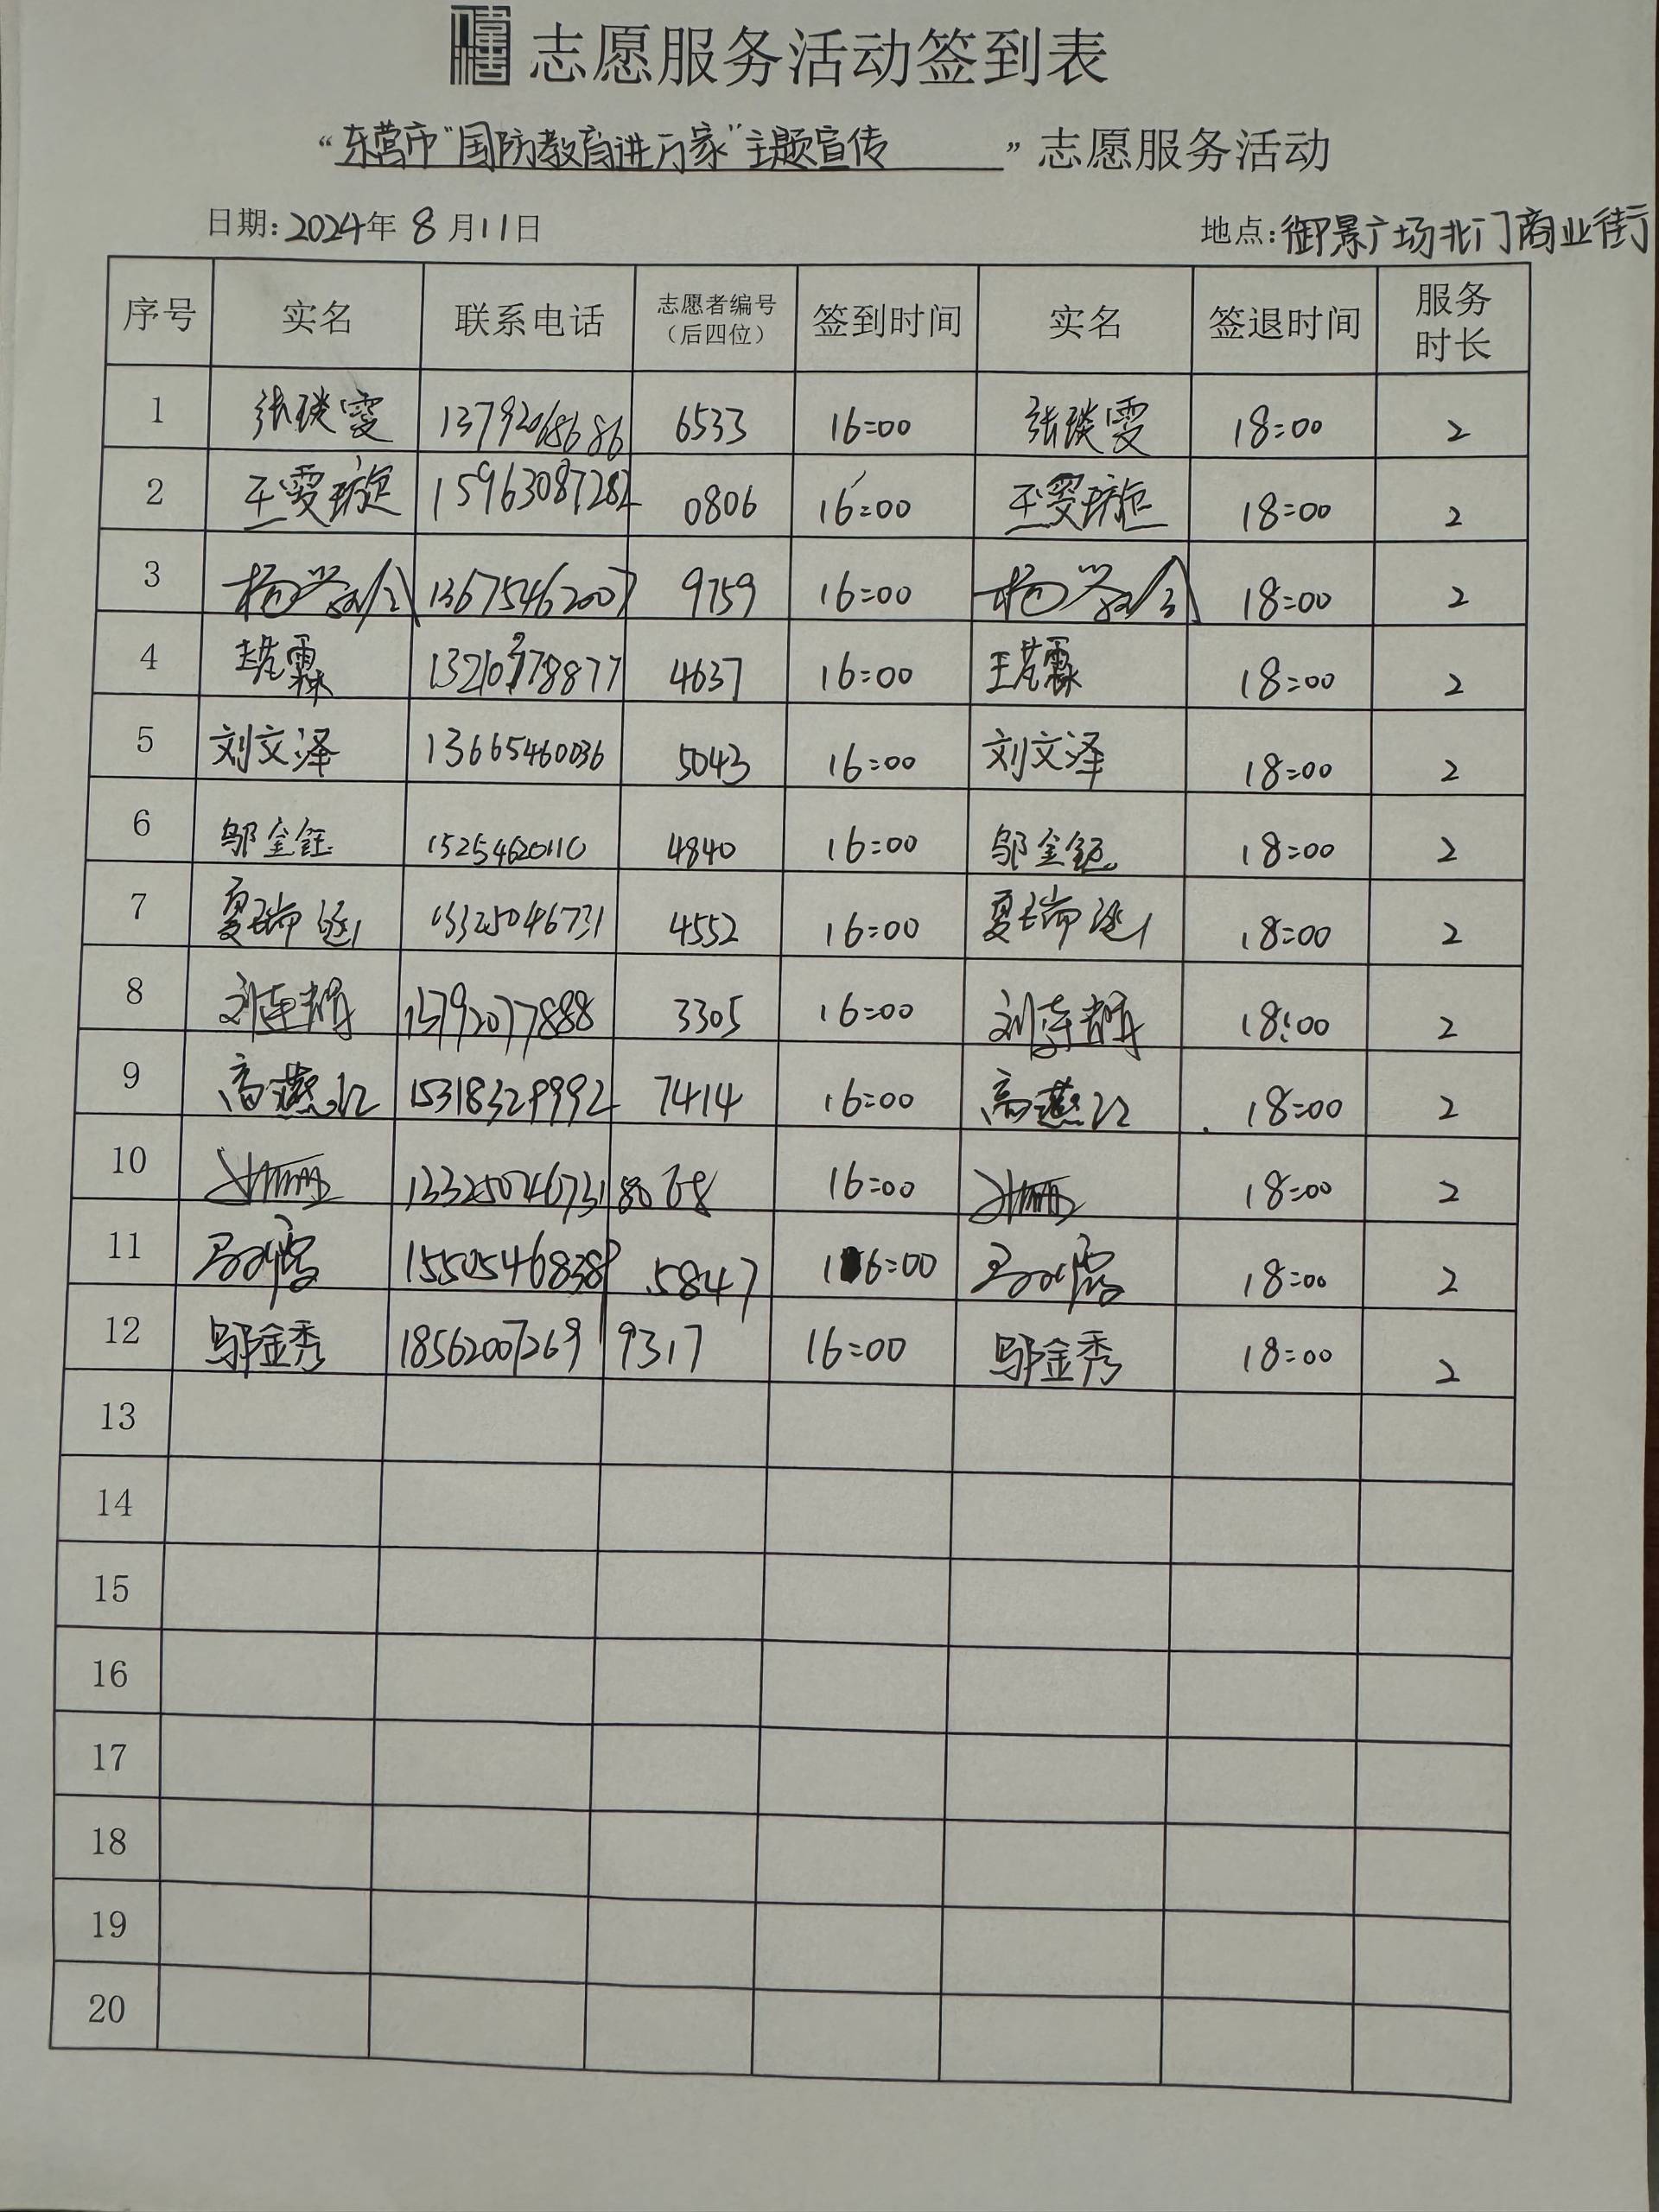 志愿服务活动签到表
“东营市“国防教育进万家”主题宣传”志愿服务活动
日期:2024年8月11日 地点:御景广场北门商业街
序号 实名 联系电话 志愿者编号（后四位） 签到时间 实名 签退时间 服务时长
1 张琰雯 13792068686 6533 16:00 张琰雯 18:00 2
2 王雯璇 15963087282 0806 16:00 王雯璇 18:00 2
3 杨 13675462007 9759 16:00 杨 18:00 2
4 霖 4637 16:00 霖 18:00 2
5 刘文泽 13665460036 5043 16:00 刘文泽 18:00 2
6 邬金钰 15254620110 4840 16:00 邬金钰 18:00 2
7 夏瑞 13325046731 4552 16:00 夏瑞 18:00 2
8 刘连 13792077888 3305 16:00 刘连 18:00 2
9 高燕 15318329992 7414 16:00 高燕 18:00 2
10 13325046731 8068 16:00 18:00 2
11 15505468389 5847 16:00 18:00 2
12 邬金秀 18562007269 9317 16:00 邬金秀 18:00 2
13
14
15
16
17
18
19
20